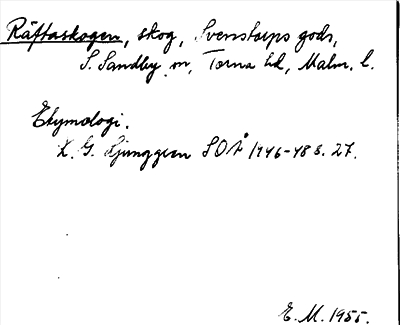 Räftaskogen, skog, Svenstorps gods,
S. Sandby sn, Torna hd, Malm. l.
Etymologi.
K. G. Ljunggren SOÅ 1946-48 s. 27.
E. M. 1955.